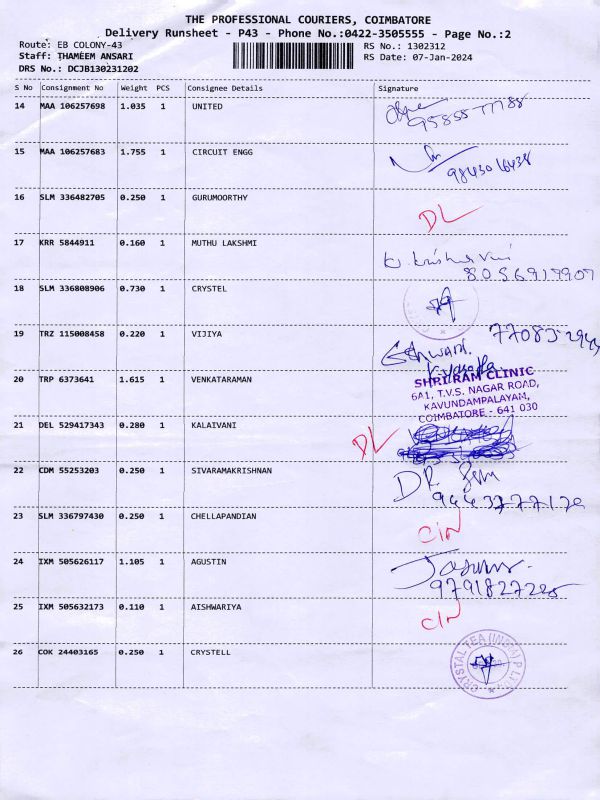 THE PROFESSIONAL COURIERS, COIMBATORE
Delivery Runsheet - P43 - Phone No.:0422-3505555 - Page No.:2
Route: EB COLONY-43 RS No.: 1302312
Staff: THAMEEM ANSARI RS Date: 07-Jan-2024
DRS No.: DCJB130231202
S No Consignment No Weight PCS Consignee Details Signature
14 MAA 106257698 1.035 1 UNITED
15 MAA 106257683 1.755 1 CIRCUIT ENGG
9843016438
16 SLM 336482705 0.250 1 GURUMOORTHY
DL
17 KRR 5844911 0.160 1 MUTHU LAKSHMI
8056917907
18 SLM 336808906 0.730 1 CRYSTEL
19 TRZ 115008458 0.220 1 VIJIYA
20 TRP 6373641 1.615 1 VENKATARAMAN
SHRI RAM CLINIC
6A1, T.V.S. NAGAR ROAD,
KAVUNDAMPALAYAM,
COIMBATORE - 641 030
21 DEL 529417343 0.280 1 KALAIVANI
DL
22 CDM 55253203 0.250 1 SIVARAMAKRISHNAN
DR
23 SLM 336797430 0.250 1 CHELLAPANDIAN
CIN
24 IXM 505626117 1.105 1 AGUSTIN
25 IXM 505632173 0.110 1 AISHWARIYA
CIN
26 COK 24403165 0.250 1 CRYSTELL
CRYSTAL TEA (INDIA) P LTD